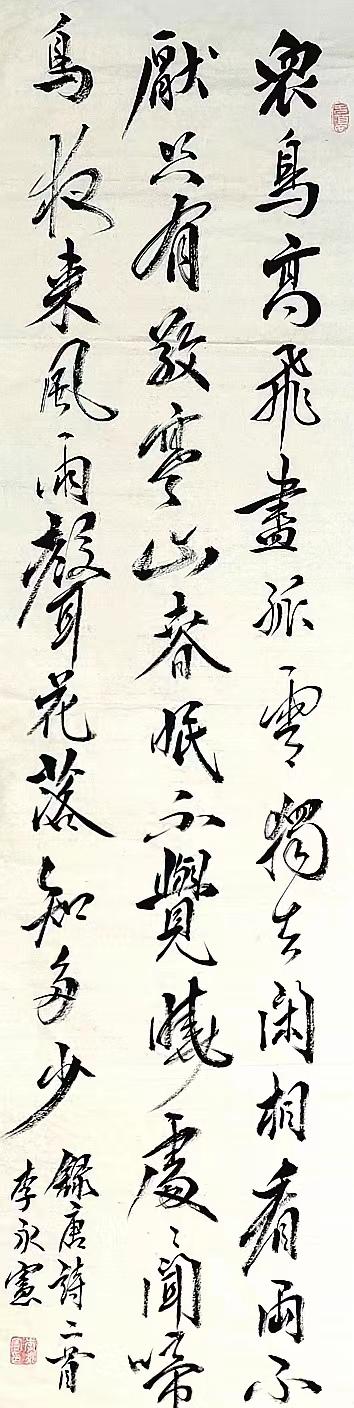 衆鳥高飛盡孤雲獨去閑相看兩不
厭只有敬亭山春眠不覺曉處〻聞啼
鳥夜来風雨聲花落知多少
錄唐詩二首
李永憲